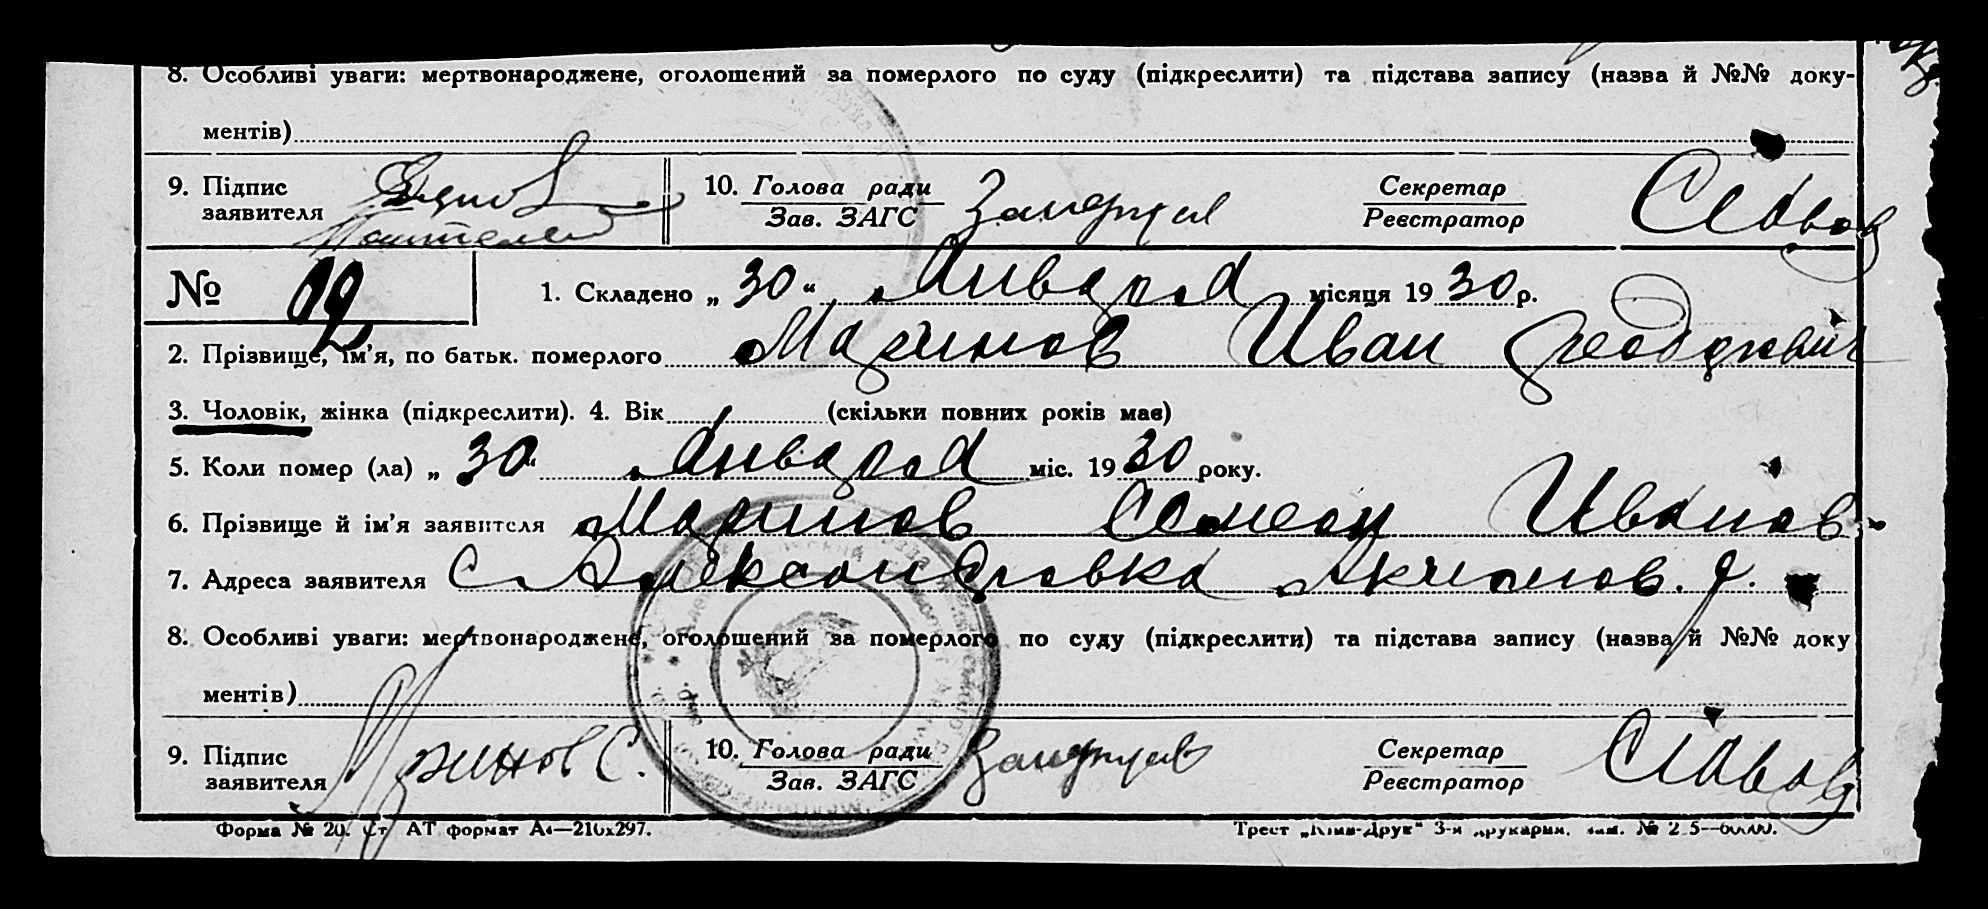 8. Особливі уваги: мертвонароджене, оголошений за померлого по суду (підкреслити) та підстава запису (назва й №№ доку-
ментів)
9. Підпис заявителя
10. Голова ради
Зав. ЗАГС
Секретар
Реєстратор
№
1. Складено „ 30 “ Января місяця 1930 р.
2. Прізвище, ім’я, по батьк. померлого Маринов Иван
3. Чоловік, жінка (підкреслити). 4. Вік (скільки повних років має)
5. Коли помер (ла) „ 30 “ Января міс. 1930 року.
6. Прізвище й ім’я заявителя Маринов Семен Иванов.
7. Адреса заявителя с Александровка
8. Особливі уваги: мертвонароджене, оголошений за померлого по суду (підкреслити) та підстава запису (назва й №№ доку
ментів)
9. Підпис заявителя Маринов С.
10. Голова ради
Зав. ЗАГС
Секретар
Реєстратор
Форма № 20. Ст АТ формат А4—210х297.
Трест „Київ-Друк“ 3-я друкарня,